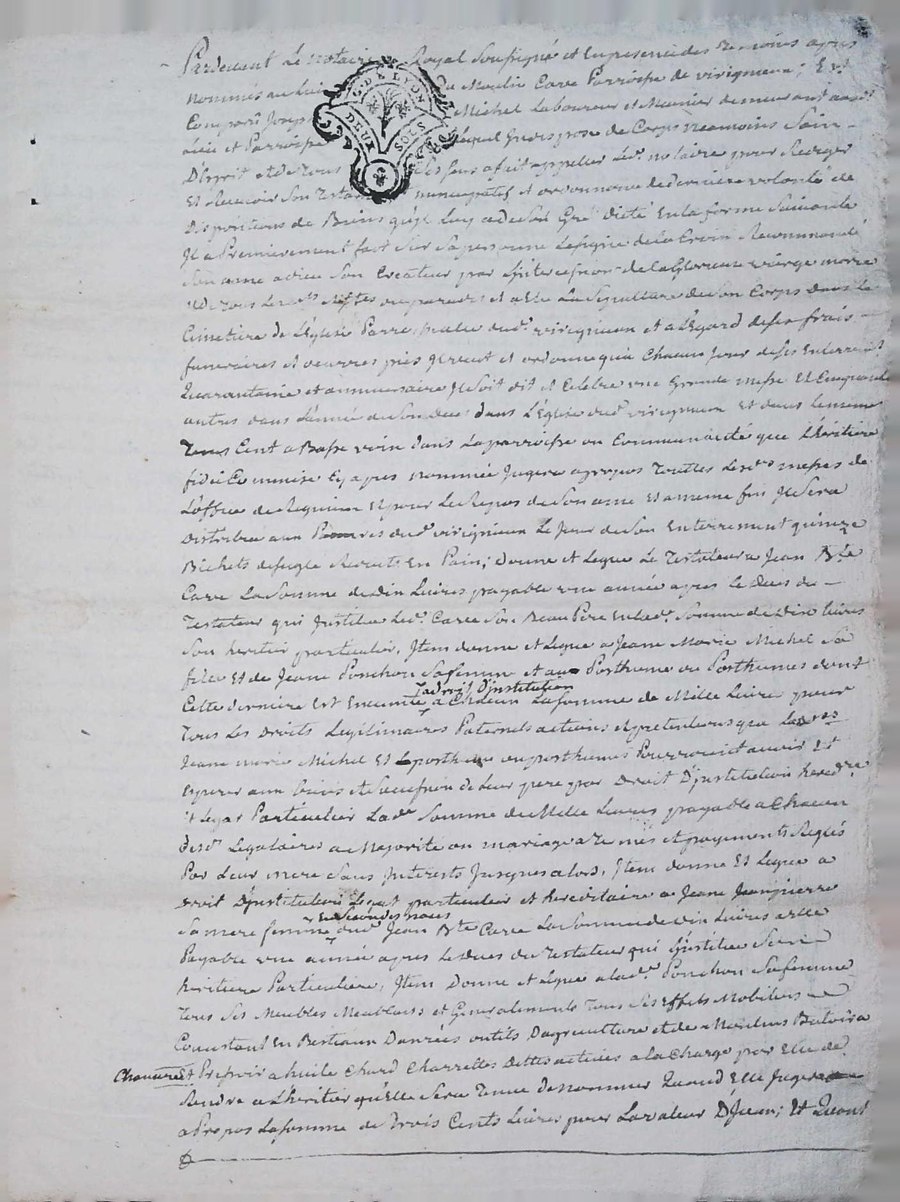 Pardevant Le notaire Royal Soussigné et En presence des Temoins apres
nommés au Lieu Du Moulin Care Parroisse de virigneux; Est
Comparu Joseph Michel Laboureur et Meunier demeurant aud.
Lieu et Parroisse Lequel Indispose de Corps neamoins Sain
D'Esprit et de Tous Ses Sens a fait appeller Led. notaire pour Rediger
Et Recevoir Son Testament nuncupatif et ordonnance de derniere volonté de
Dispositions de Biens qu'il luy a de Son Gré dicté En la forme Suivante
Il a Premierement fait Sur Sa personne Le signe de la Croix Recommandé
Son ame a dieu Son Createur par L'intercession de la Glorieuse vierge marie
et de Tous Les Sts du paradis et a Elu La Sepulture de Son Corps dans le
Cimetiere de L'Eglise Parroissialle dud. virigneux et a L'Egard de ses frais
funeraires et oeuvres pies Il veut et ordonne qu'a Chacun Jour de Ses Enterrement
Quarantaine et anniversaire Il Soit dit et Celebré une Grande messe Et
autres dans L'année de Son deces dans L'Eglise dud. virigneux Et dans le meme
Tems Cent a Basse voix dans La parroisse ou Communauté que L'heritiere
fidei Commise Cy apres nommée Jugera apropos Toutes Lesd. messes de
L'office de Requiem Et pour Le Repos de Son ame Et a meme fin Il Sera
Distribué aux Pauvres dud. virigneux Le Jour de Son Enterrement quinze
Bichets de seigle Reduits En Pain; Donne et Legue Le Testateur a Jean Bte
Care La Somme de dix Livres payable une année apres le deces du
Testateur qui Institue Led. Care Son Beau Pere En lad. Somme de Dix livres
Son heritier particulier, Item donne et Legue a Jeanne Marie Michel Sa
fille Et de Jeanne Ponchon Sa femme et aux Posthume ou Posthumes dont
Cette derniere Est Enceinte a Chacun La Somme de Mille Livre pour
a droit d'institution
Tous Les Droits Legitimaires Paternels actions et pretentions que Lad.
Jeanne marie Michel Et Le posthume ou posthumes Pourroient avoir Et
Esperer aux biens et Succession de Leur pere par Droit D'institution hered.re
Et Legat Particulier Lade Somme de Mille Livres payable a Chacun
desd. Legataires a Majorité ou mariage a Termes et payements Reglés
Par Leur mere Sans Interests Jusques alors, Item donne Et Legue a
droit D'institution Legat particulier et hereditaire a Jeanne Jeanpierre
Sa mere femme dud. Jean Bte Care La Somme de dix Livres a Elle
En Secondes noces
Payable une année apres Le deces du Testateur qui L'institue Son
heritiere Particuliere, Item Donne et Legue a lade Ponchon Sa femme
Tous Ses Meubles Meublants et Generalement Tous Ses Effets Mobiliers
Consistant En Bestiaux Danrées outils D'agriculture et de Moulins Batoir a
Chanvre Et Pressoir a huile Chard Charrettes Dettes actives a la Charge par Elle de
Rendre a L'heritier qu'Elle Sera Tenue de nommer Quand Elle Jugera
apropos La Somme de Trois Cents Livres pour La valeur D'Iceux; Et Quant
G. DE LYON
DEUX SOLS